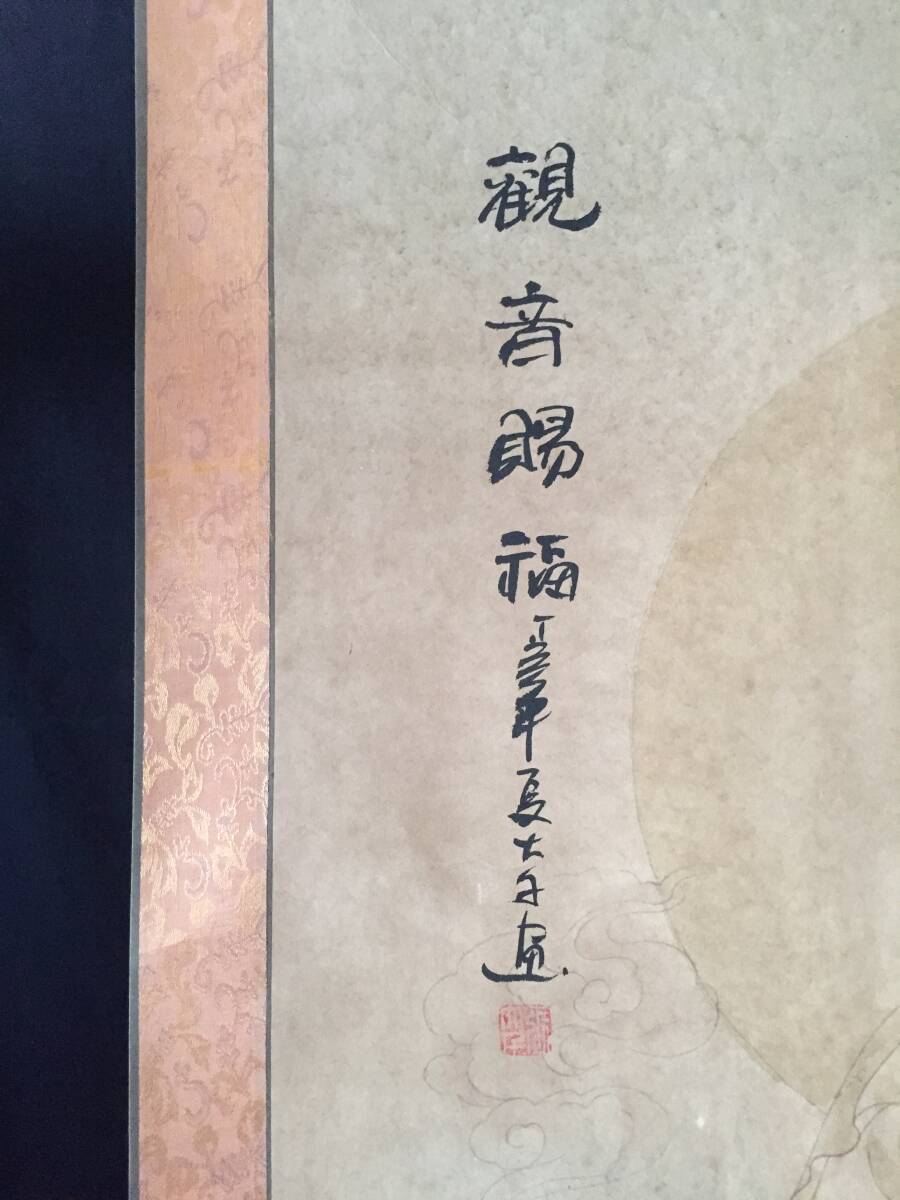 觀音賜福丁亥年夏大午画